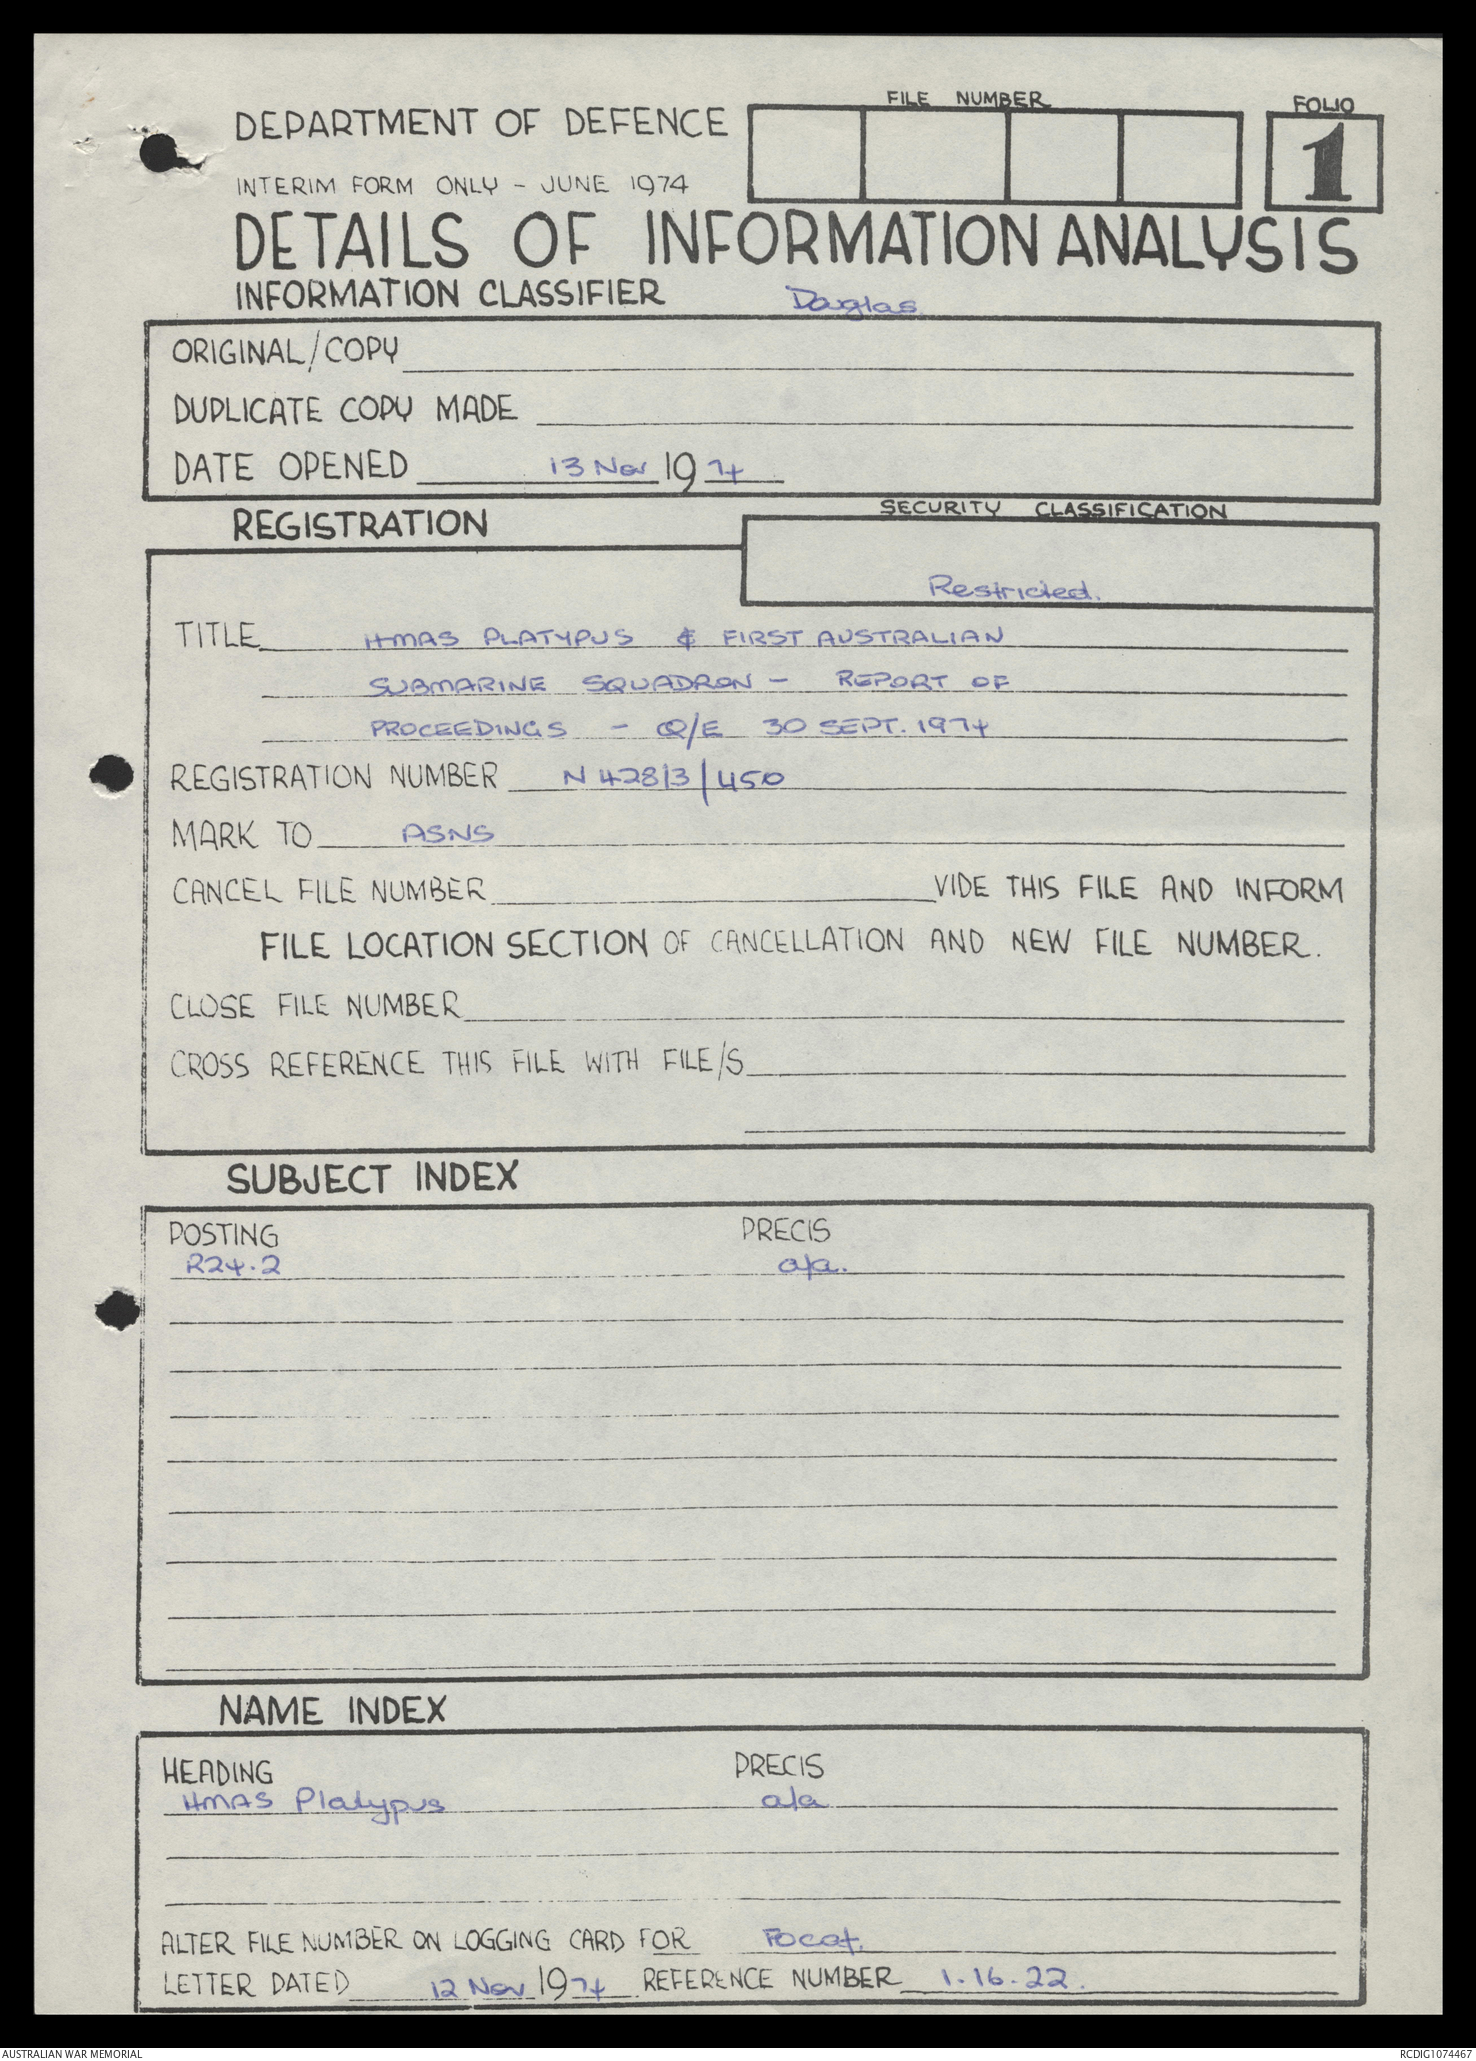 FILE NUMBER
FOLIO
DEPARTMENT OF DEFENCE
1
INTERIM FORM ONLY - JUNE 1974
DETAILS OF INFORMATION ANALYSIS
INFORMATION CLASSIFIER Douglas
ORIGINAL/COPY
DUPLICATE COPY MADE
DATE OPENED 13 Nov 1974
REGISTRATION
SECURITY CLASSIFICATION
Restricted.
TITLE HMAS PLATYPUS & FIRST AUSTRALIAN
SUBMARINE SQUADRON - REPORT OF
PROCEEDINGS - Q/E 30 SEPT. 1974
REGISTRATION NUMBER N 428/3/450
MARK TO ASNS
CANCEL FILE NUMBER VIDE THIS FILE AND INFORM
FILE LOCATION SECTION OF CANCELLATION AND NEW FILE NUMBER.
CLOSE FILE NUMBER
CROSS REFERENCE THIS FILE WITH FILE/S
SUBJECT INDEX
POSTING PRECIS
R24.2 a/a.
NAME INDEX
HEADING PRECIS
HMAS Platypus a/a
ALTER FILE NUMBER ON LOGGING CARD FOR Focaf.
LETTER DATED 12 Nov 1974 REFERENCE NUMBER 1.16.22.
AUSTRALIAN WAR MEMORIAL
RCDIG1074467